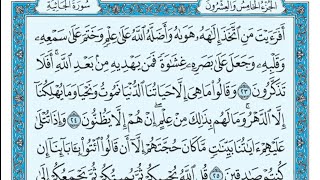 الجزء الخامس والعشرون سورة الجاثية
أَفَرَءَيْتَ مَنِ ٱتَّخَذَ إِلَٰهَهُۥ هَوَىٰهُ وَأَضَلَّهُ ٱللَّهُ عَلَىٰ عِلْمٍ وَخَتَمَ عَلَىٰ سَمْعِهِۦ
وَقَلْبِهِۦ وَجَعَلَ عَلَىٰ بَصَرِهِۦ غِشَٰوَةً فَمَن يَهْدِيهِ مِنۢ بَعْدِ ٱللَّهِ ۚ أَفَلَا
تَذَكَّرُونَ ٢٣ وَقَالُوا۟ مَا هِىَ إِلَّا حَيَاتُنَا ٱلدُّنْيَا نَمُوتُ وَنَحْيَا وَمَا يُهْلِكُنَآ
إِلَّا ٱلدَّهْرُ ۚ وَمَا لَهُم بِذَٰلِكَ مِنْ عِلْمٍ ۖ إِنْ هُمْ إِلَّا يَظُنُّونَ ٢٤ وَإِذَا تُتْلَىٰ
عَلَيْهِمْ ءَايَٰتُنَا بَيِّنَٰتٍ مَّا كَانَ حُجَّتَهُمْ إِلَّآ أَن قَالُوا۟ ٱئْتُوا۟ بِـَٔابَآئِنَآ إِن
كُنتُمْ صَٰدِقِينَ ٢٥ قُلِ ٱللَّهُ يُحْيِيكُمْ ثُمَّ يُمِيتُكُمْ ثُمَّ يَجْمَعُكُمْ إِلَىٰ